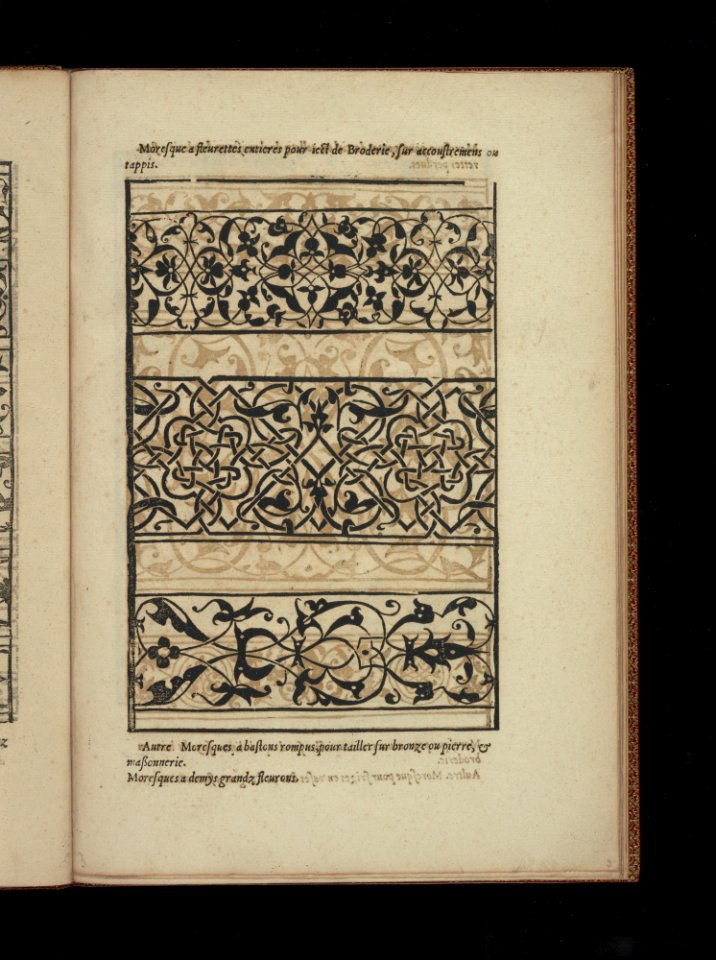 Moresque a fleurettes entieres pour iect de Broderie, sur accoustremens ou
tappis.
Autre Moresques a bastons rompus, pour tailler sur bronze ou pierre, &
maßonnerie.
Moresques a demys grandz fleurons.